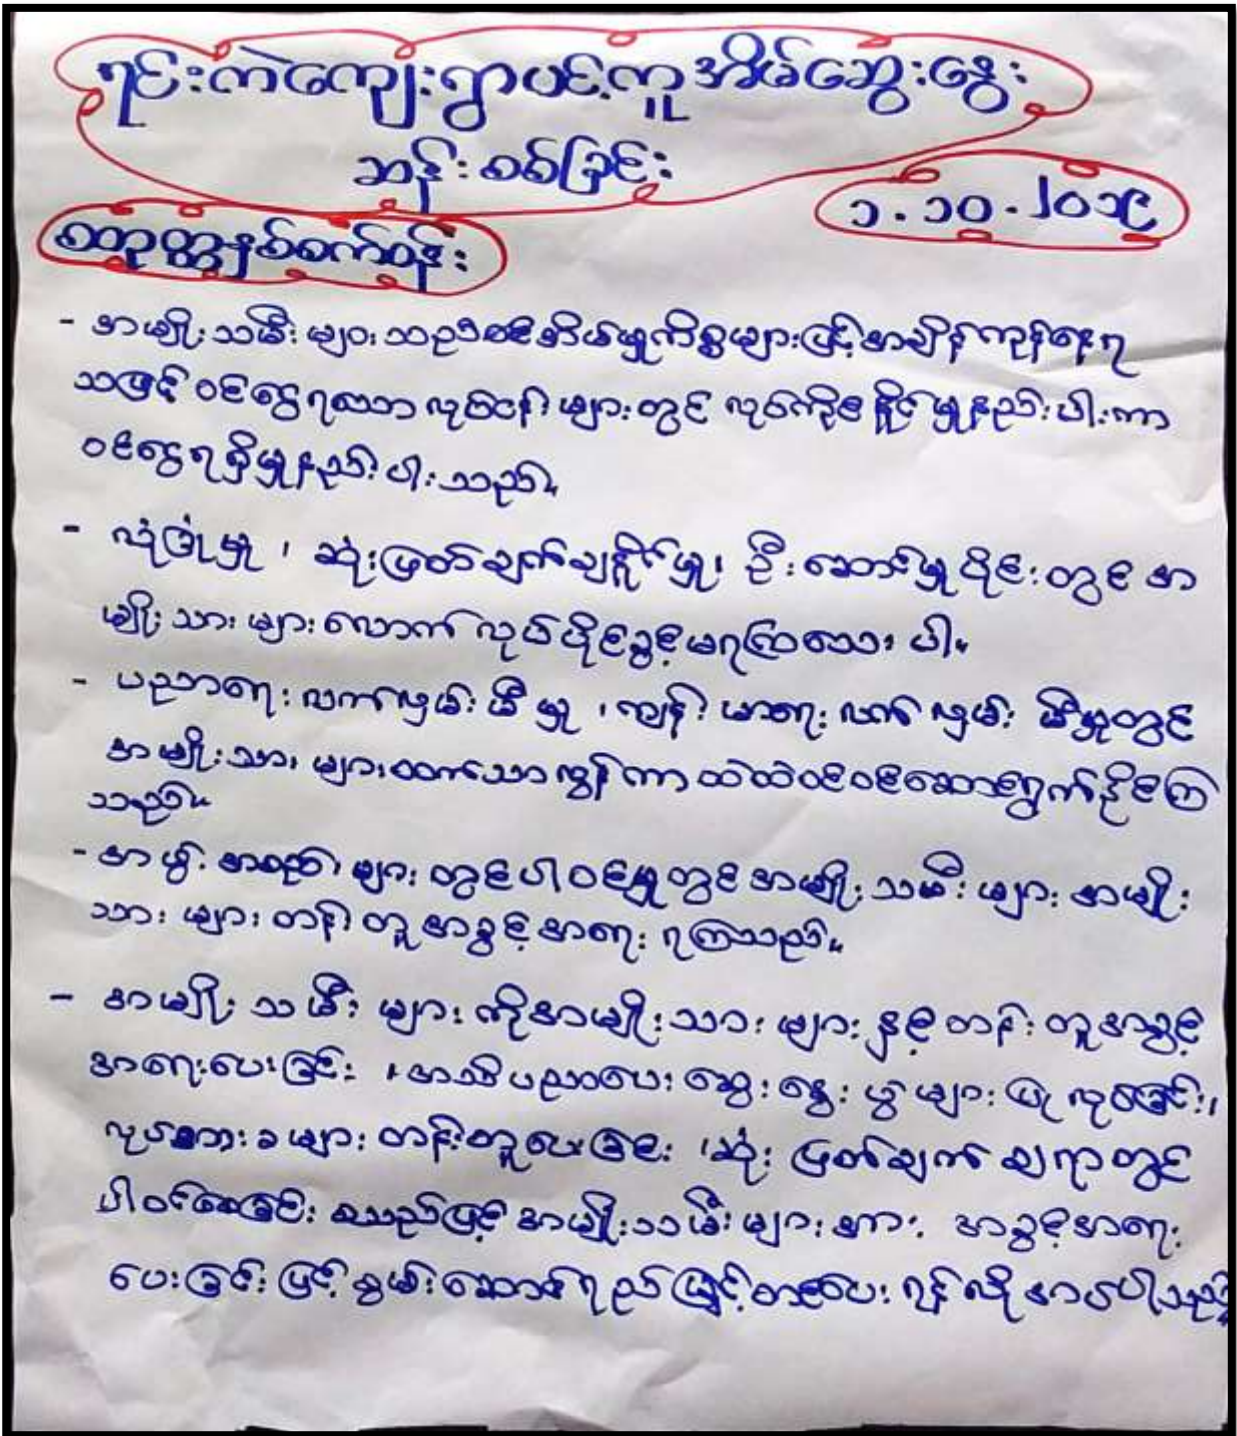 ရင်းကဲကျေးရွာပင့်ကူအိမ်ဆွေးနွေး
ဆန်းစစ်ခြင်း
၁.၁၀.၂၀၁၉
စတုတ္ထနှစ်စက်ဝန်း
- အမျိုးသမီးများသည် အိမ်မှုကိစ္စများဖြင့်အချိန်ကုန်နေရ
သဖြင့် ဝင်ငွေရသော လုပ်ငန်းများတွင် လုပ်ကိုင်နိုင်မှုနည်းပါးကာ
ဝင်ငွေရရှိမှုနည်းပါးသည်။
- လုံခြုံမှု၊ ဆုံးဖြတ်ချက်ချနိုင်မှု၊ ဦးဆောင်မှုပိုင်းတွင် အ
မျိုးသားများလောက် လုပ်ပိုင်ခွင့်မရကြသေးပါ။
- ပညာရေးလက်လှမ်းမီမှု၊ ကျန်းမာရေးလက်လှမ်းမီမှုတွင်
အမျိုးသားများထက်သာလွန်ကာ ထဲထဲဝင်ဝင်ဆောင်ရွက်နိုင်ကြ
သည်။
- အဖွဲ့အစည်းများတွင်ပါဝင်မှုတွင်အမျိုးသမီးများ အမျိုး
သားများတန်းတူအခွင့်အရေးရကြသည်။
- အမျိုးသမီးများကိုအမျိုးသားများနှင့်တန်းတူအခွင့်
အရေးပေးခြင်း၊ အသိပညာပေးဆွေးနွေးပွဲများပြုလုပ်ခြင်း၊
လုပ်အားခများတန်းတူပေးခြင်း၊ ဆုံးဖြတ်ချက်ချရာတွင်
ပါဝင်စေခြင်း စသည်ဖြင့် အမျိုးသမီးများအား အခွင့်အရေး
ပေးခြင်းဖြင့် စွမ်းဆောင်ရည်မြှင့်တင်ပေးရန်လိုအပ်ပါသည်။